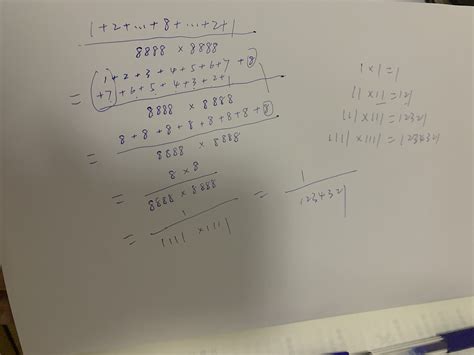 1+2+...+8+...+2+1
8888 × 8888
= 1+2+3+4+5+6+7+8
+7+6+5+4+3+2+1
8888 × 8888
= 8+8+8+8+8+8+8+8
8888 × 8888
= 8×8
8888 × 8888
= 1
1111 × 1111
= 1
1234321
1×1=1
11×11=121
111×111=12321
1111×1111=1234321